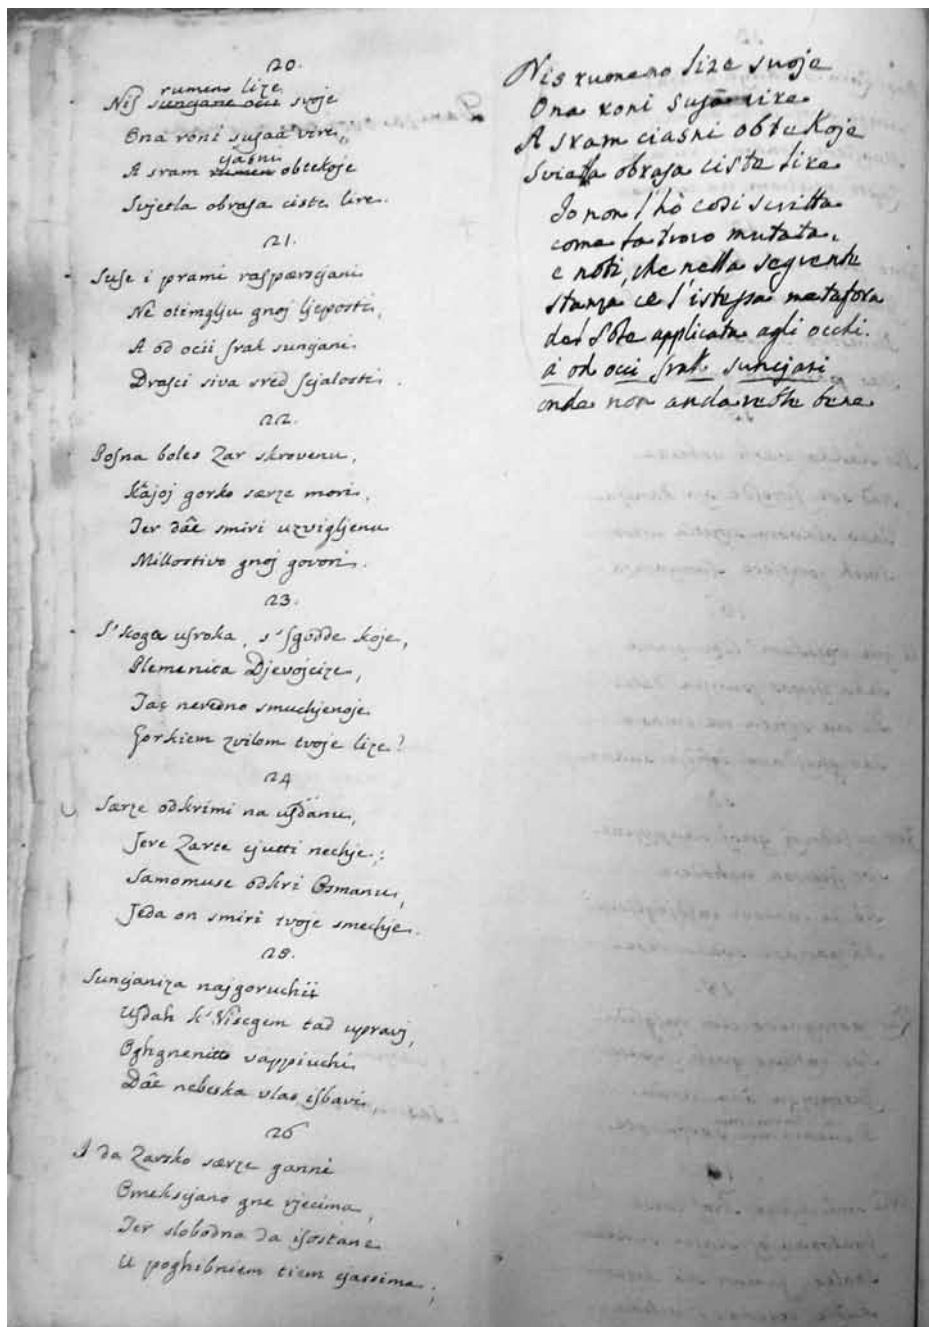 20.
rumeno lize
Nis sungane ocii svoje
Ona roni susaa vire,
gasni
A sram rumen obtekoje
Svjetla obrasa ciste lire.
21.
Suse i prami raspærscjani
Ne otimglju gnoj ljeposti,
A od ocii srak suncjani
Drasci siva sred scjalosti.
22.
Bosna boles Zar skrovenu,
Kâjoj gorko særze mori,
Jer dâe smiri uzvigljenu
Millostivo gnoj govori.
23.
S'koga usroka, s'sgodde koje,
Plemenita Djevojcize,
Jas neredno smuchjenoje
Gorkiem zvilom tvoje lize?
24
Særze odkrimi na usdanu,
Jere Zarte cjutti nechje;
Samomuse odkri Osmanu,
Jeda on smiri tvoje smechje.
25.
Suncjaniza najgoruchii
Usdah k'Visegem tad upravi,
Oghgnenitto vappiuchi
Dâe nebeska vlas isbavi,
26
I da Zarsko særze ganni
Omekscjano gne rjecima,
Jer slobodna da isostane
U poghibniem tiem cjassima;
Nis rumeno lize svoje
Ona roni susa vire
A sram ciasni obtekoje
Svietla obrasa ciste lire
Io non l'hò così scritta
come la trovo mutata,
e noti, che nella seguente
stanza è l'istessa metafora
del Sole applicata agli occhi.
a od ocii srak suncjani
onde non andarebbe bene